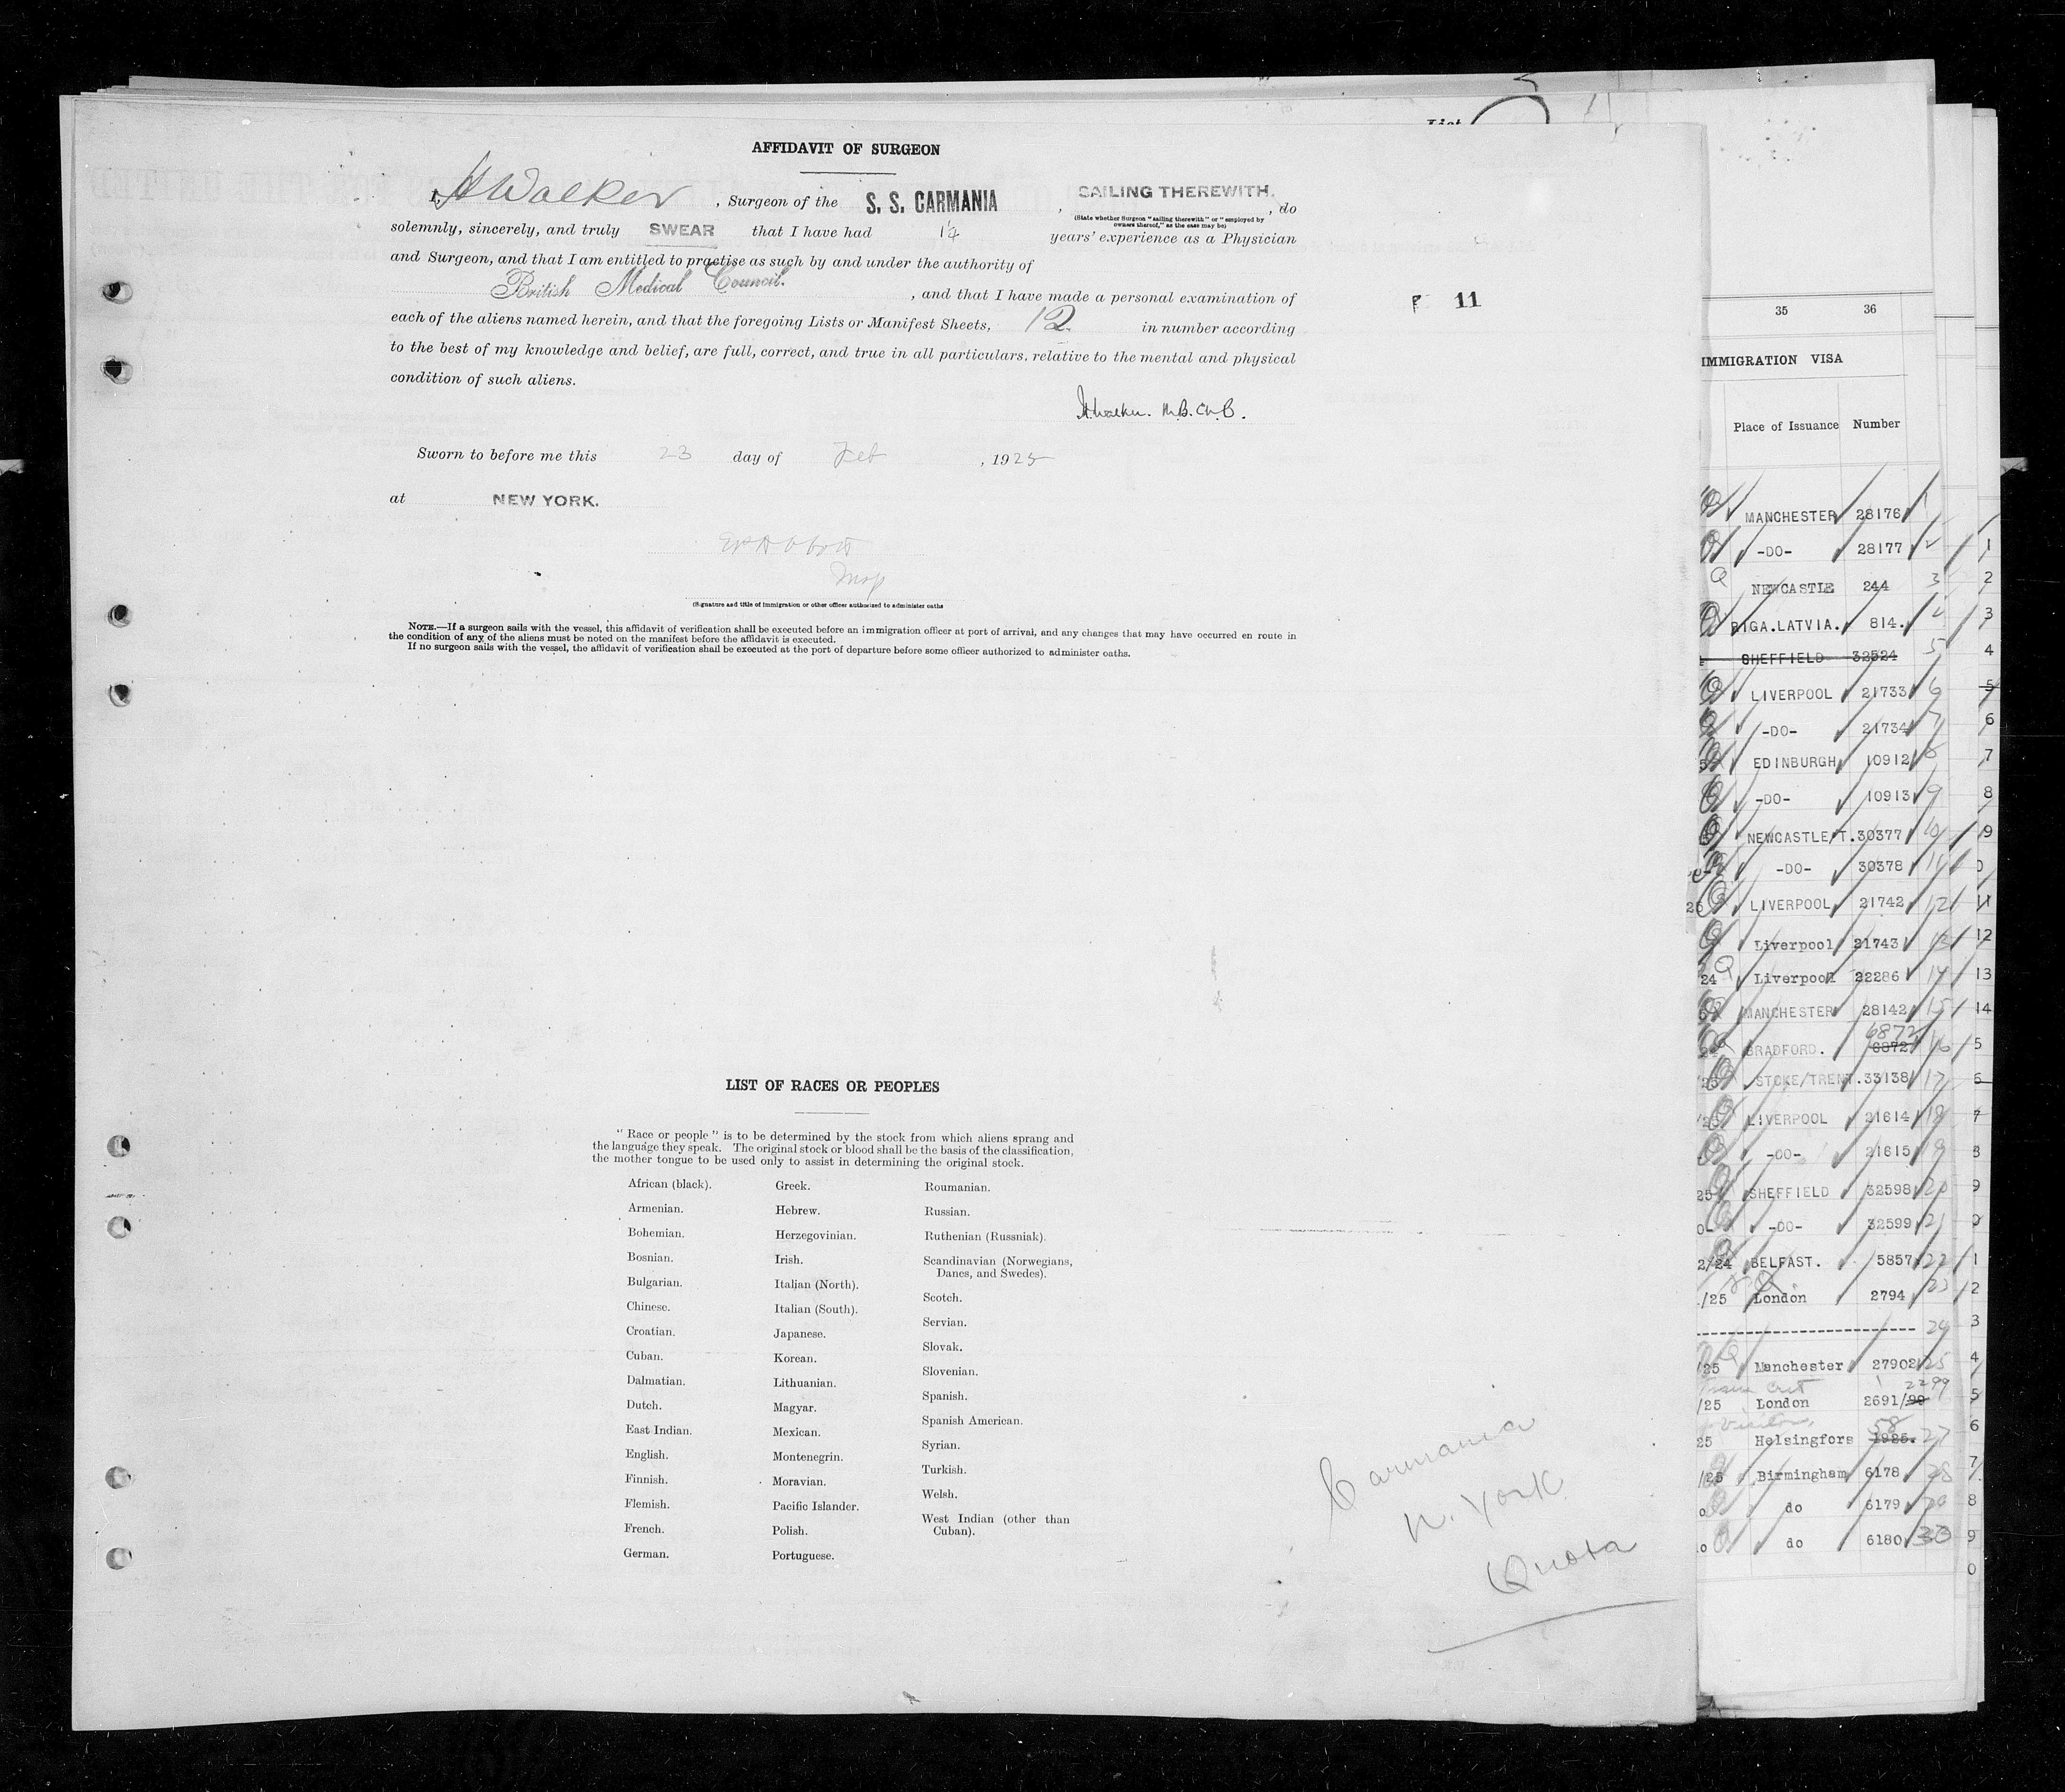 List
AFFIDAVIT OF SURGEON
I, H Walker, Surgeon of the S. S. CARMANIA, SAILING THEREWITH., do
(State whether Surgeon "sailing therewith" or "employed by
owners thereof," as the case may be)
solemnly, sincerely, and truly SWEAR that I have had 14 years' experience as a Physician
and Surgeon, and that I am entitled to practise as such by and under the authority of
British Medical Council. , and that I have made a personal examination of
P 11
each of the aliens named herein, and that the foregoing Lists or Manifest Sheets, 12 in number according
to the best of my knowledge and belief, are full, correct, and true in all particulars, relative to the mental and physical
condition of such aliens.
H Walker. M.B. Ch.B.
Sworn to before me this 23 day of Feb , 1925
at NEW YORK.
Insp
(Signature and title of immigration or other officer authorized to administer oaths
NOTE.—If a surgeon sails with the vessel, this affidavit of verification shall be executed before an immigration officer at port of arrival, and any changes that may have occurred en route in
the condition of any of the aliens must be noted on the manifest before the affidavit is executed.
If no surgeon sails with the vessel, the affidavit of verification shall be executed at the port of departure before some officer authorized to administer oaths.
LIST OF RACES OR PEOPLES
" Race or people " is to be determined by the stock from which aliens sprang and
the language they speak. The original stock or blood shall be the basis of the classification,
the mother tongue to be used only to assist in determining the original stock.
African (black).
Armenian.
Bohemian.
Bosnian.
Bulgarian.
Chinese.
Croatian.
Cuban.
Dalmatian.
Dutch.
East Indian.
English.
Finnish.
Flemish.
French.
German.
Greek.
Hebrew.
Herzegovinian.
Irish.
Italian (North).
Italian (South).
Japanese.
Korean.
Lithuanian.
Magyar.
Mexican.
Montenegrin.
Moravian.
Pacific Islander.
Polish.
Portuguese.
Roumanian.
Russian.
Ruthenian (Russniak).
Scandinavian (Norwegians,
Danes, and Swedes).
Scotch.
Servian.
Slovak.
Slovenian.
Spanish.
Spanish American.
Syrian.
Turkish.
Welsh.
West Indian (other than
Cuban).
Carmania
N. York
Quota
35 36
IMMIGRATION VISA
Place of Issuance Number
MANCHESTER 28176 1
-DO- 28177 2 1
Q NEWCASTLE 244 3 2
RIGA.LATVIA. 814. 4 3
SHEFFIELD 32524 5 4
LIVERPOOL 21733 6 5
-DO- 21734 7 6
EDINBURGH 10912 8 7
-DO- 10913 9 8
NEWCASTLE/T. 30377 10 9
-DO- 30378 11 0
LIVERPOOL 21742 12 11
Liverpool 21743 13 12
24 Q Liverpool 22286 14 13
MANCHESTER 28142 15 14
6872
BRADFORD. 6872 16 5
STOKE/TRENT. 33138 17 6
LIVERPOOL 21614 18 7
-DO- 21615 19 8
25 SHEFFIELD 32598 20 9
-DO- 32599 21 0
2/24 BELFAST. 5857 22 1
/25 London 2794 23 2
24 3
/25 Manchester 27902 25 4
2299
/25 London 2691/99 5
Visitor 58
25 Helsingfors 1925. 27 6
/25 Birmingham 6178 28 7
do 6179 29 8
do 6180 30 9
0